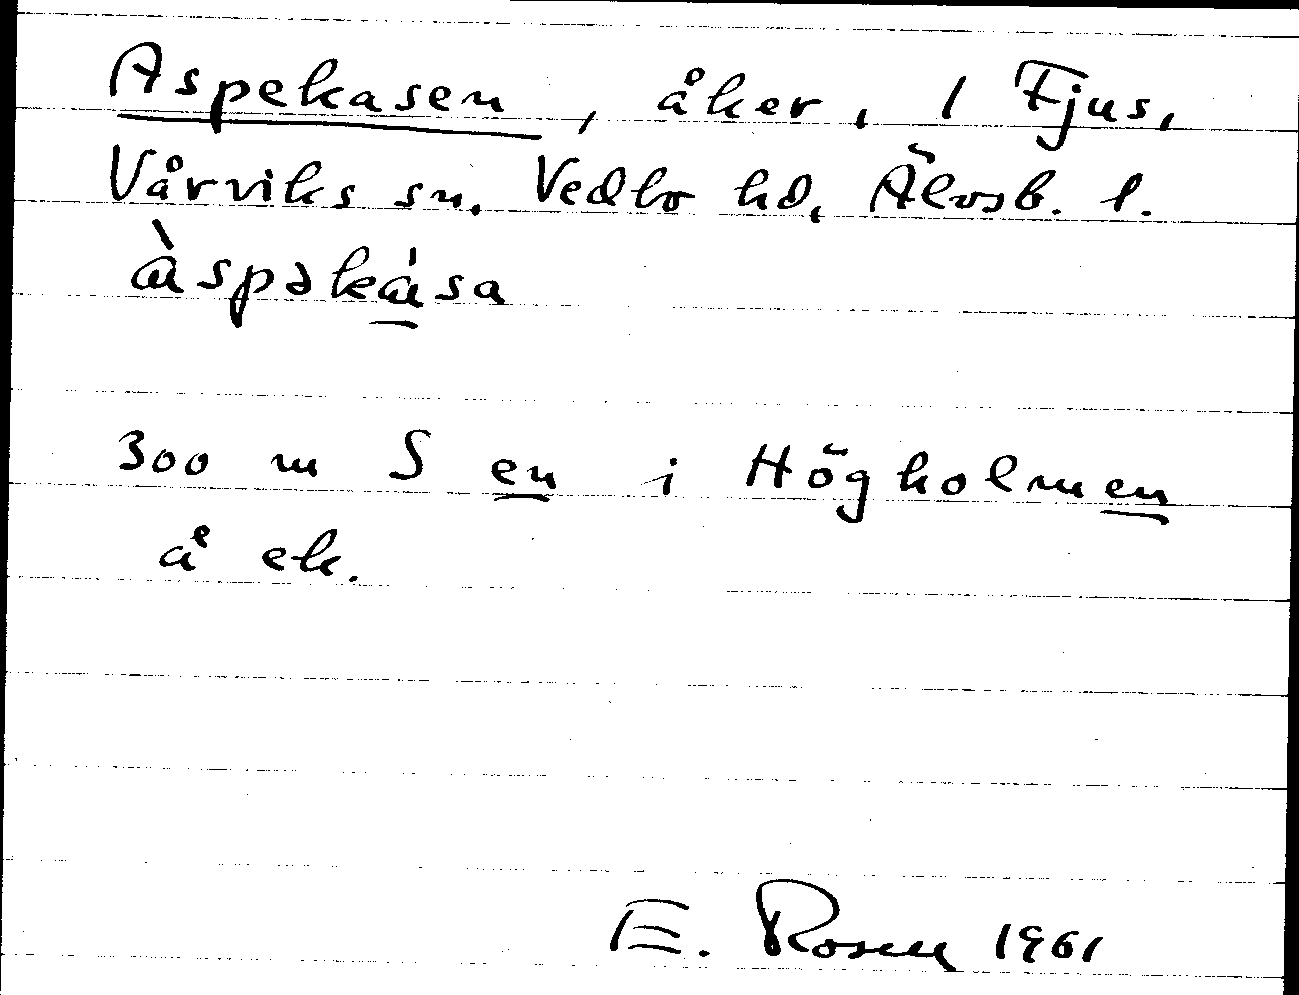 Aspekasen, åker, 1 Fjus,
Vårviks sn. Vedbo hd, Älvsb. l.
àspəkása
300 m S en i Högholmen
å ek.
E. Rosell 1961